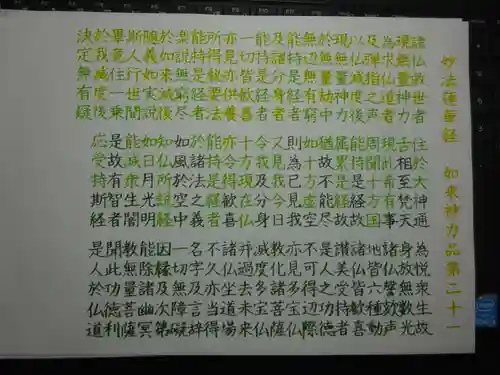 妙法蓮華經 如來神力品第二十一
諸仏救世者 住於大神通 為悦衆生故
現無量神力 舌相至梵天 身放無数光
為求仏道者 現此希有事 諸仏謦欬声
及弾指之声 周聞十方国 地皆六種動
以仏滅度後 能持是経故 諸仏皆歓喜
現無量神力 嘱累是経故 讃美受持者
於無量劫中 猶故不能尽 是人之功徳
無辺無有窮 如十方虚空 不可得辺際
能持是経者 則為已見我 亦見多宝仏
及諸分身者 又見我今日 教化諸菩薩
能持是経者 令我及分身 滅度多宝仏
一切皆歓喜 十方現在仏 并過去未来
亦見亦供養 亦令得歓喜 諸仏坐道場
所得秘要法 能持是経者 不久亦当得
能持是経者 於諸法之義 名字及言辞
楽説無窮尽 如風於空中 一切無障礙
於如来滅後 知仏所説経 因縁及次第
随義如実説 如日月光明 能除諸幽冥
斯人行世間 能滅衆生闇 教無量菩薩
畢竟住一乗 是故有智者 聞此功徳利
於我滅度後 応受持斯経 是人於仏道
決定無有疑